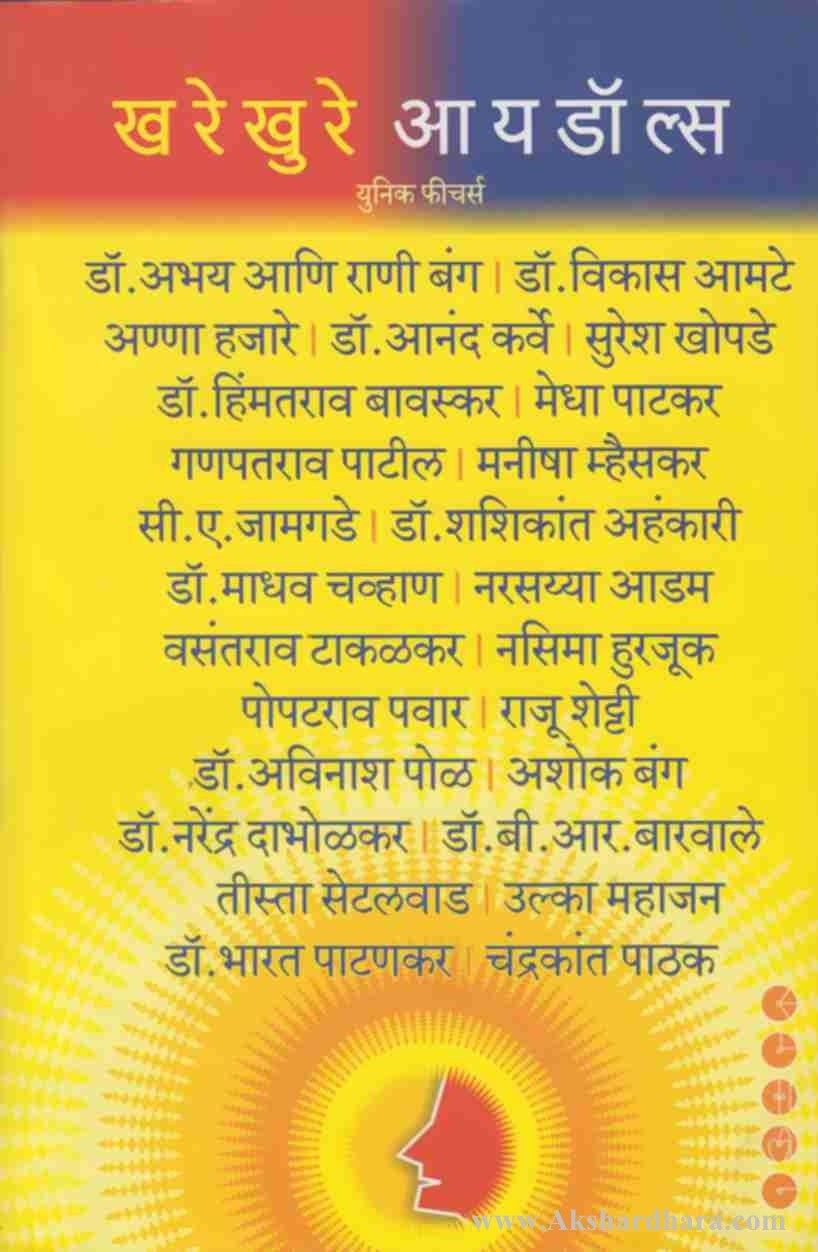 खरेखुरे आयडॉल्स
युनिक फीचर्स
डॉ.अभय आणि राणी बंग | डॉ.विकास आमटे
अण्णा हजारे | डॉ.आनंद कर्वे | सुरेश खोपडे
डॉ.हिंमतराव बावस्कर | मेधा पाटकर
गणपतराव पाटील | मनीषा म्हैसकर
सी.ए.जामगडे | डॉ.शशिकांत अहंकारी
डॉ.माधव चव्हाण | नरसय्या आडम
वसंतराव टाकळकर | नसिमा हुरजूक
पोपटराव पवार | राजू शेट्टी
डॉ.अविनाश पोळ | अशोक बंग
डॉ.नरेंद्र दाभोळकर | डॉ.बी.आर.बारवाले
तीस्ता सेटलवाड | उल्का महाजन
डॉ.भारत पाटणकर | चंद्रकांत पाठक
www.Akshardhara.com